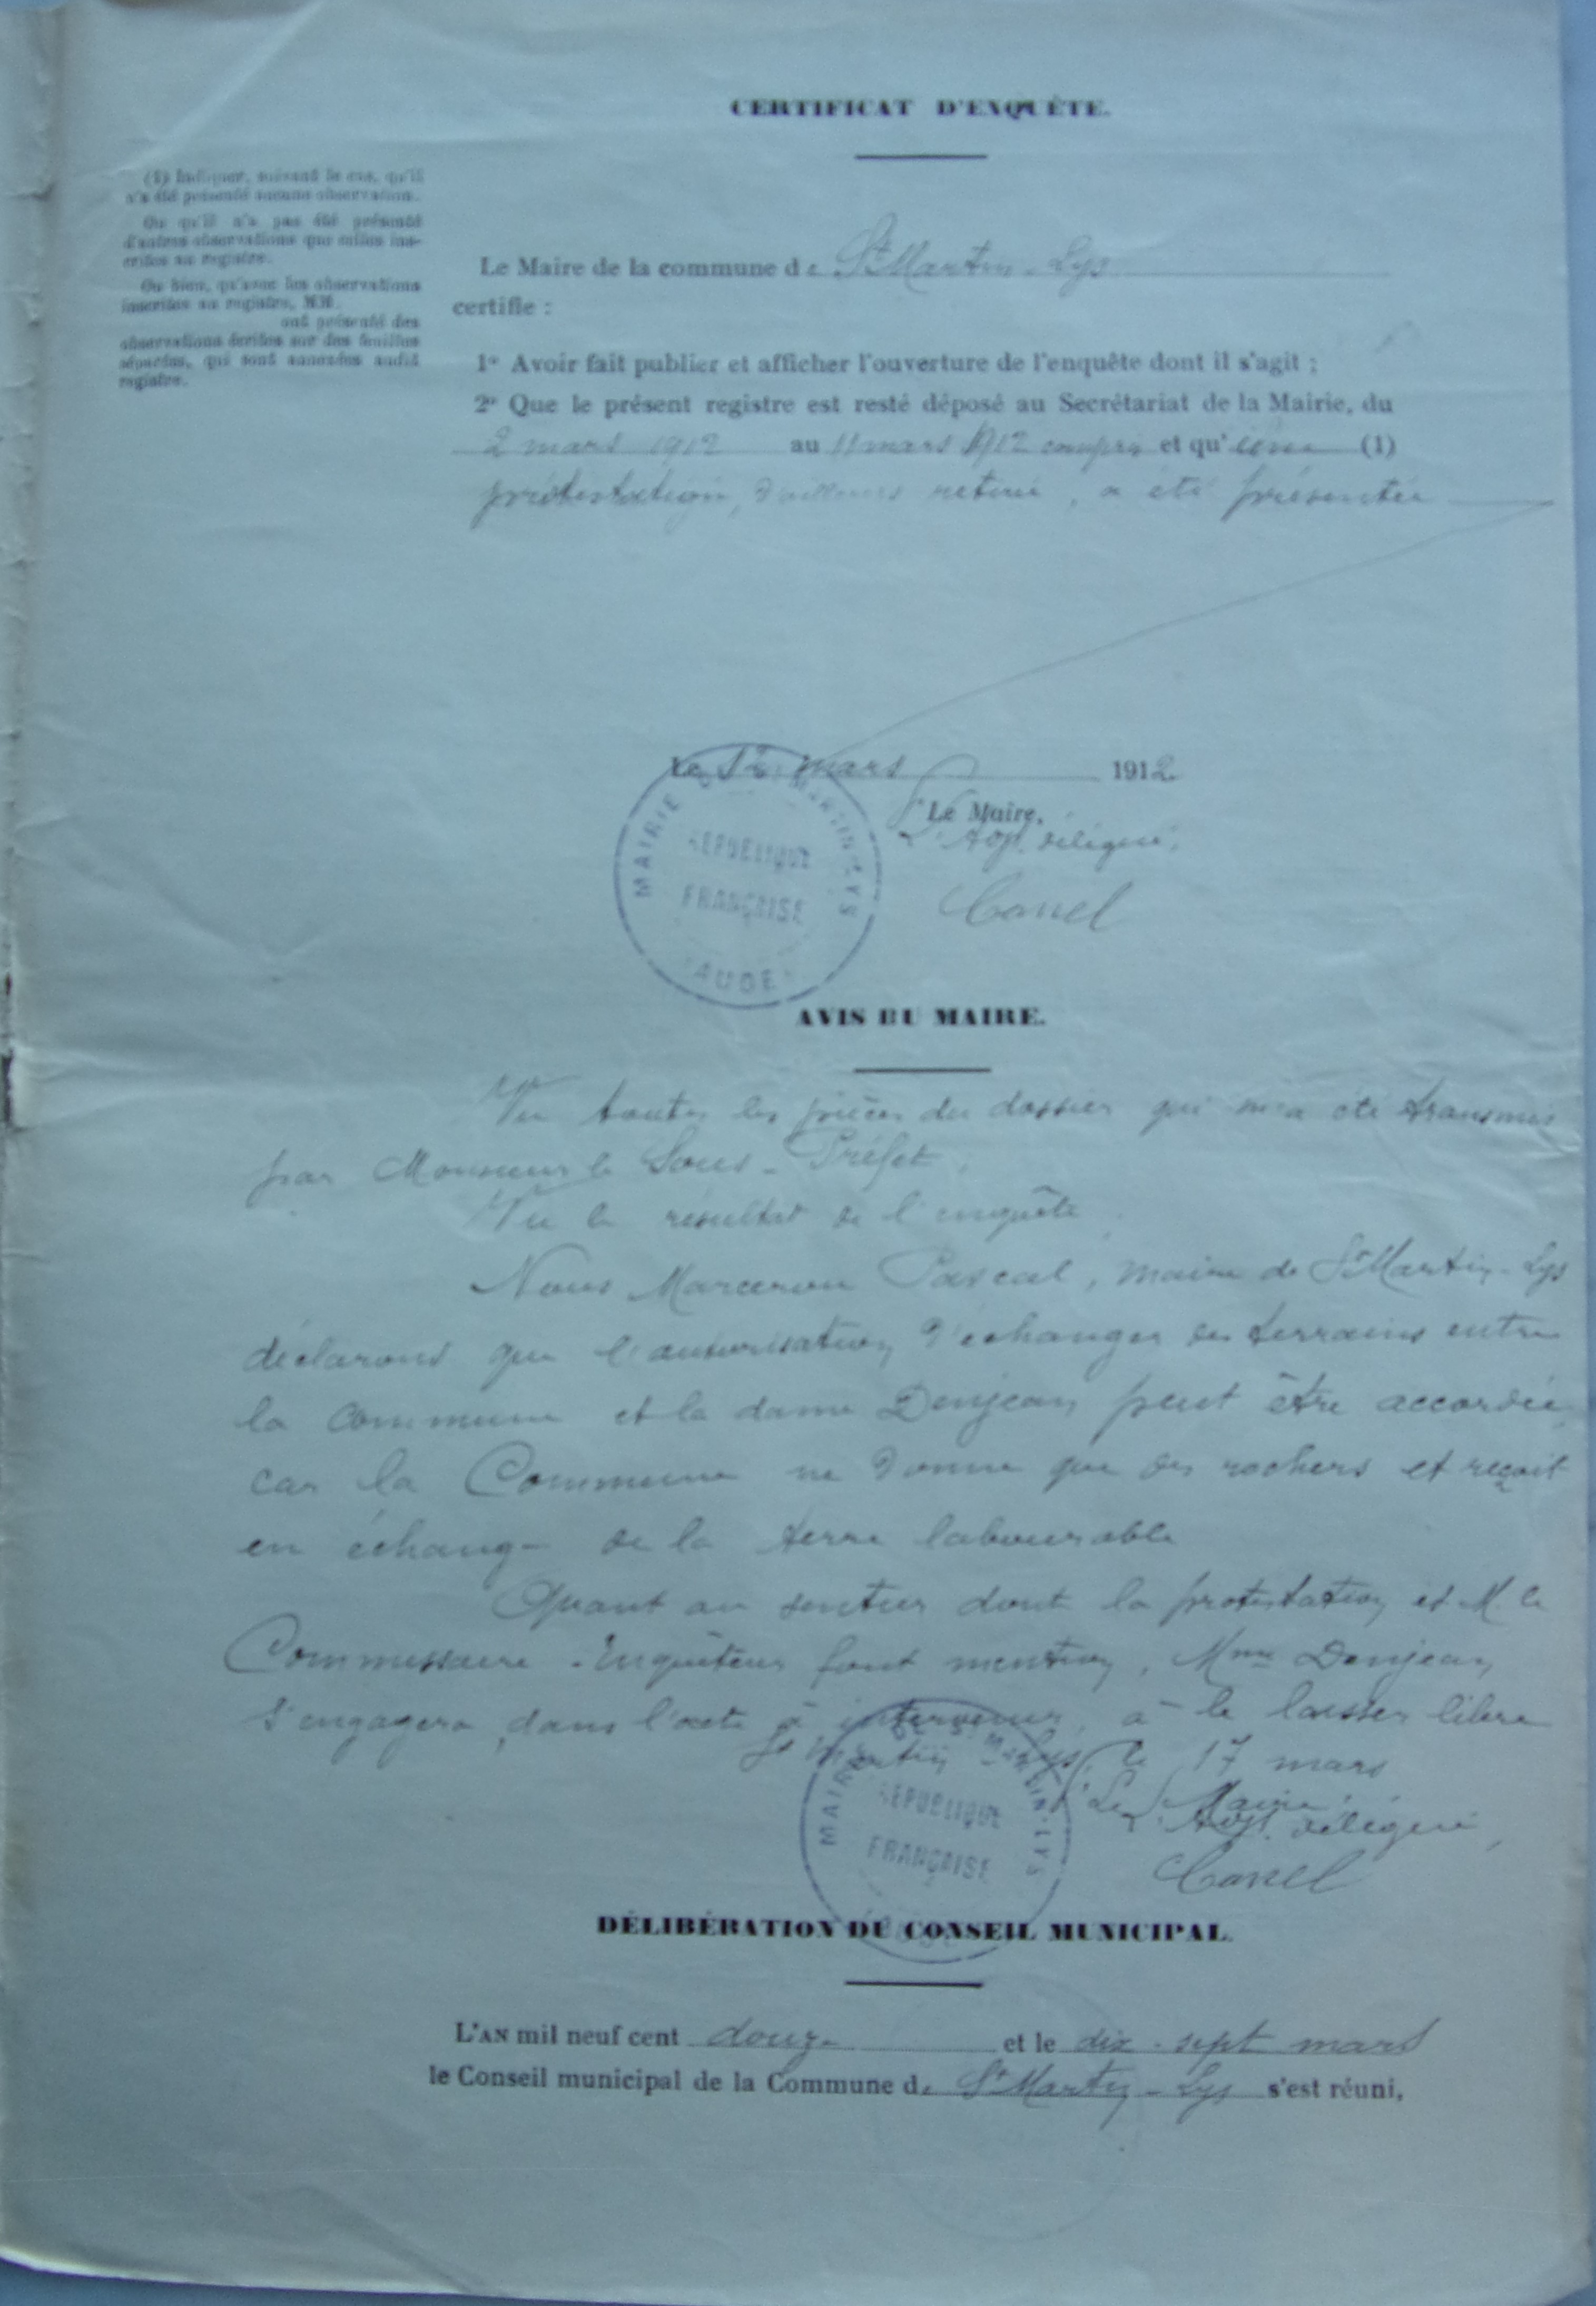 CERTIFICAT D'ENQUÊTE.
(1) Indiquer, suivant le cas, qu'il
n'a été présenté aucune observation.
Ou qu'il n'a pas été présenté
d'autres observations que celles ins-
crites au registre.
Ou bien, qu'avec les observations
inscrites au registre, MM.
ont présenté des
observations écrites sur des feuilles
séparées, qui sont annexées audit
registre.
Le Maire de la commune de St Martin-Lys
certifie :
1° Avoir fait publier et afficher l'ouverture de l'enquête dont il s'agit ;
2° Que le présent registre est resté déposé au Secrétariat de la Mairie, du
2 mars 1912 au 11 mars 1912 compris et qu'une (1)
protestation, d'ailleurs retirée, a été présentée
Le 12 mars 1912
Le Maire,
L'Adjt délégué,
Canel
MAIRIE DE ST MARTIN-LYS
RÉPUBLIQUE
FRANÇAISE
AUDE
AVIS DU MAIRE.
Vu toutes les pièces du dossier qui m'a été transmis
par Monsieur le Sous-Préfet,
Vu le résultat de l'enquête
Nous Pascal, maire de St Martin-Lys
déclarons que l'autorisation d'échanger des terrains entre
la Commune et la dame Denjean peut être accordée
car la Commune ne donne que des rochers et reçoit
en échange de la terre labourable
Quant au sentier dont la protestation et M le
Commissaire-Enquêteur font mention, Mme Denjean
s'engagera, dans l'acte à intervenir, à le laisser libre
St Martin-Lys, le 17 mars
Le Maire,
L'Adjt délégué,
Canel
MAIRIE DE ST MARTIN-LYS
RÉPUBLIQUE
FRANÇAISE
DÉLIBÉRATION DU CONSEIL MUNICIPAL.
L'AN mil neuf cent douze et le dix-sept mars
le Conseil municipal de la Commune de St Martin-Lys s'est réuni,